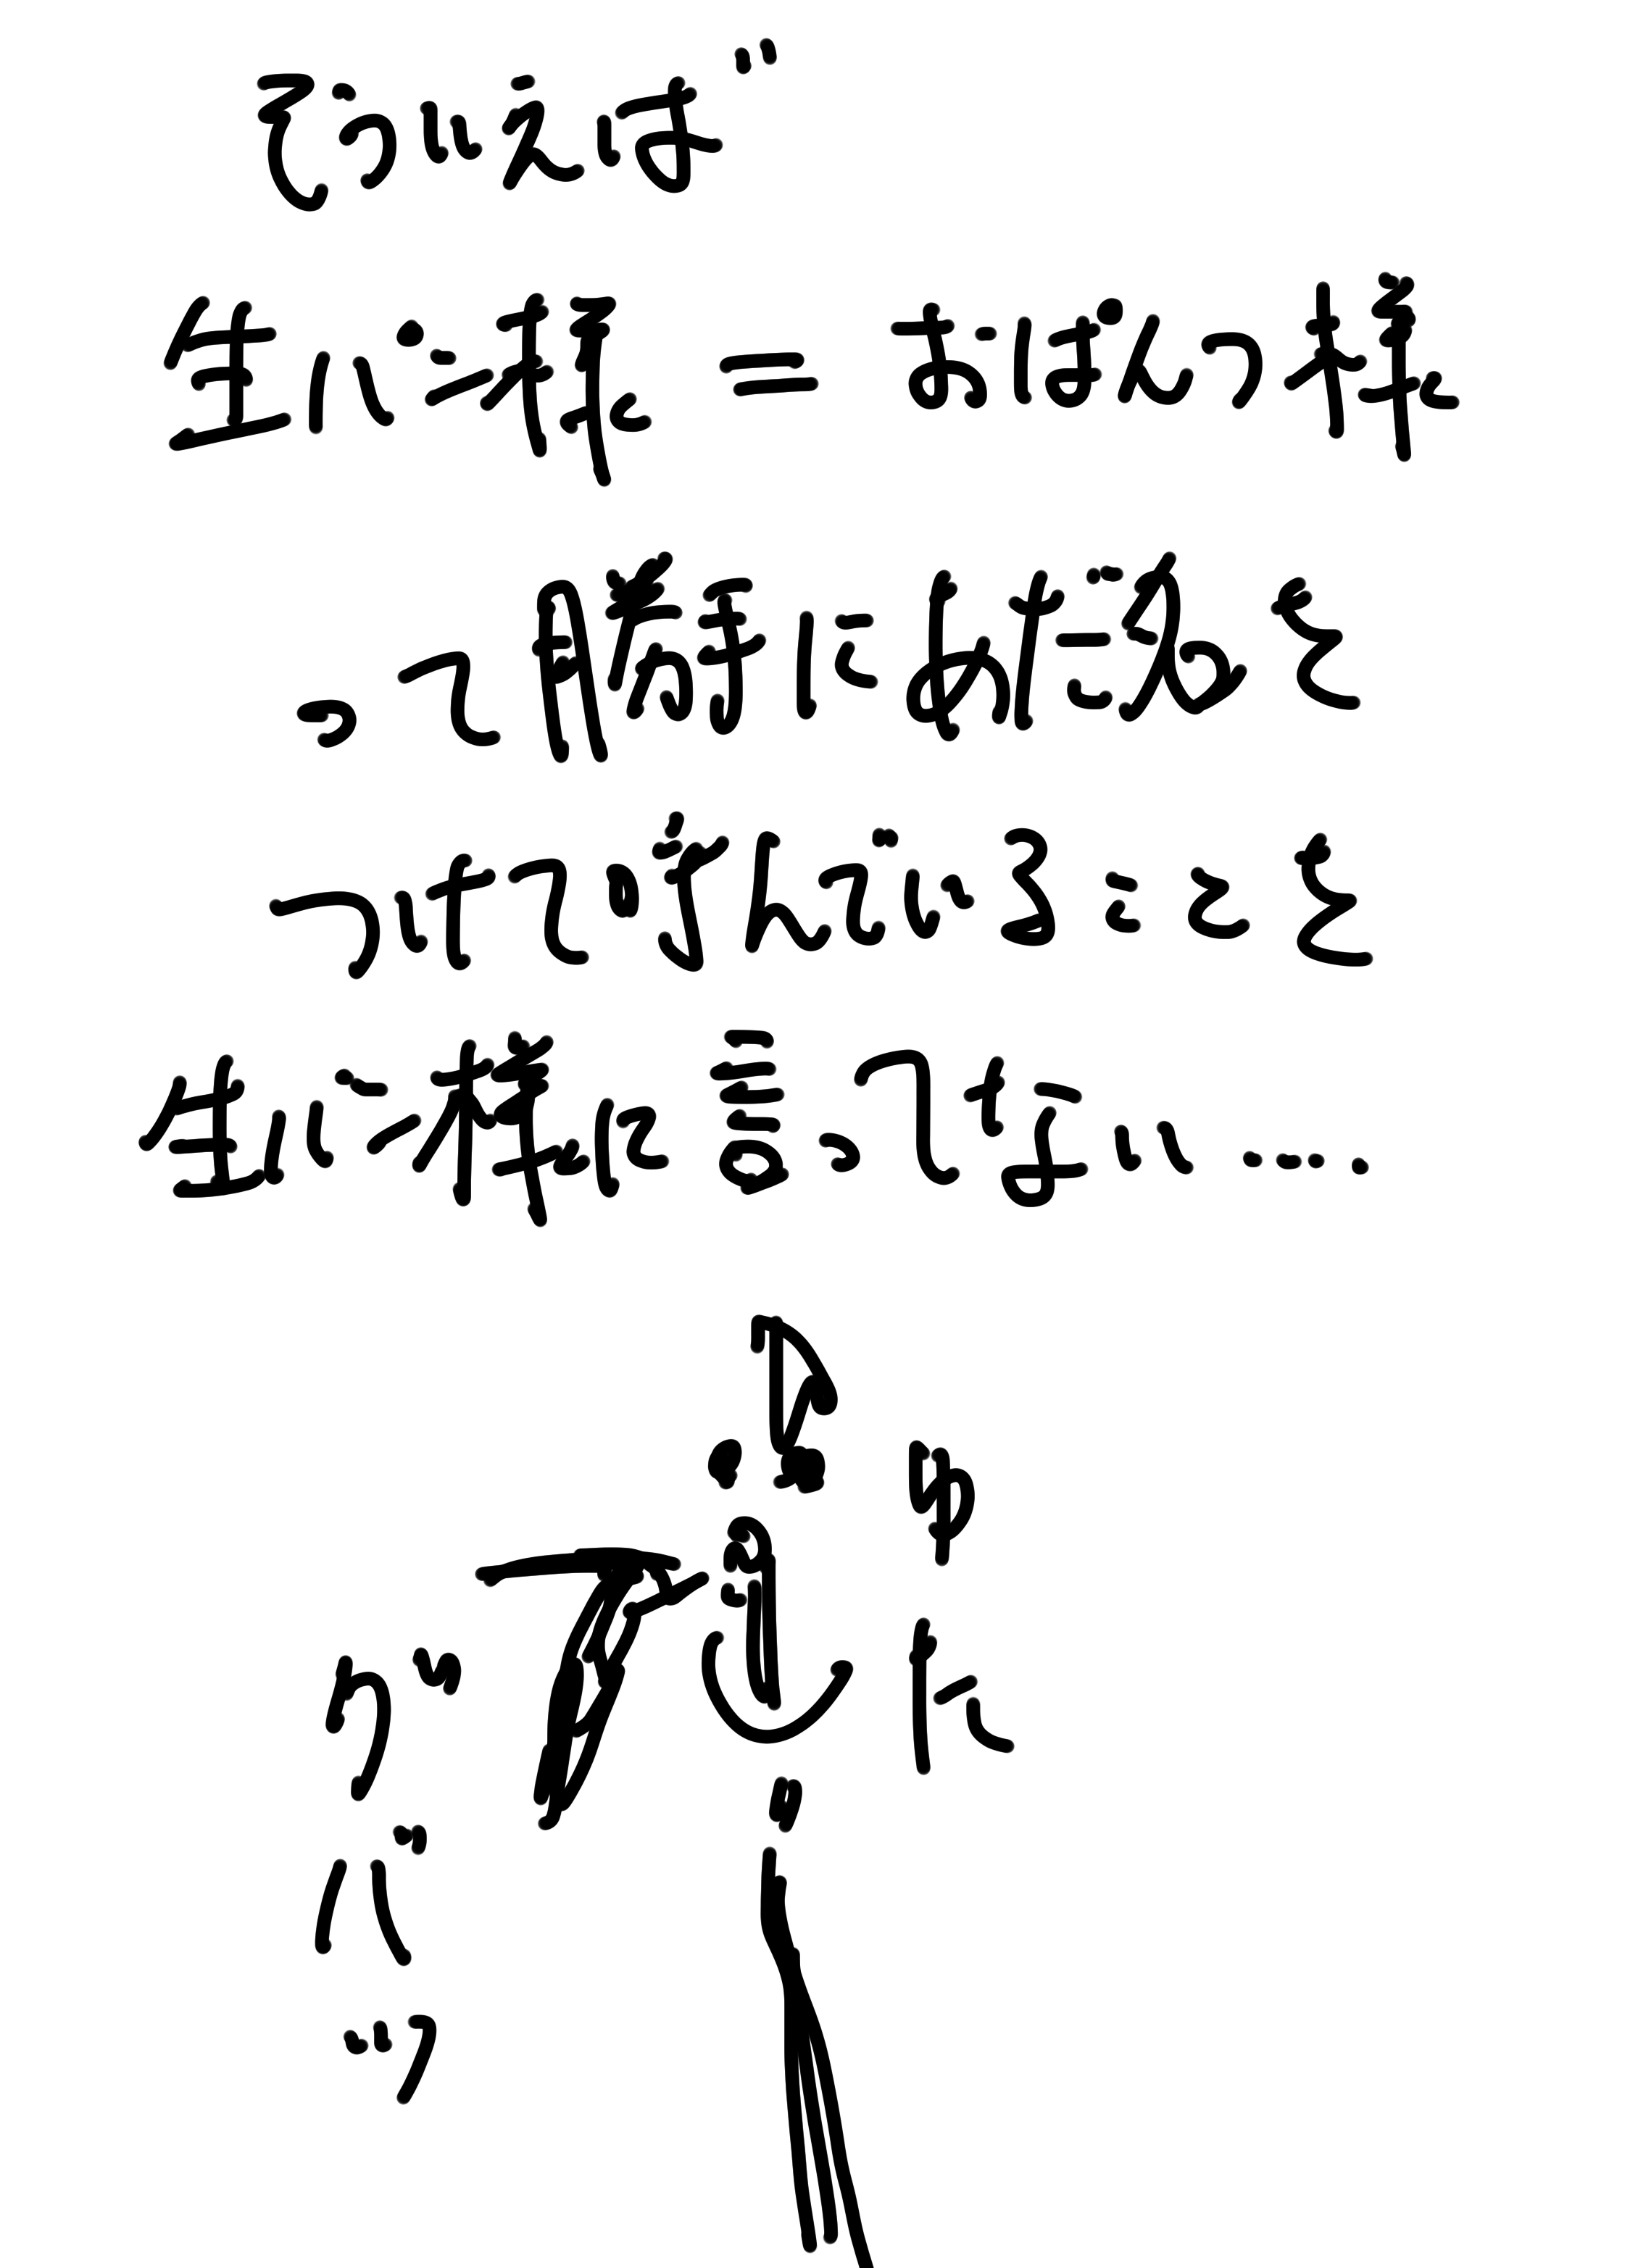 そういえば
生パン様 = おぱんつ様
って勝手にあだ名を
つけて呼んでいることを
生パン様に言ってない.....
ガ
バ
ッ